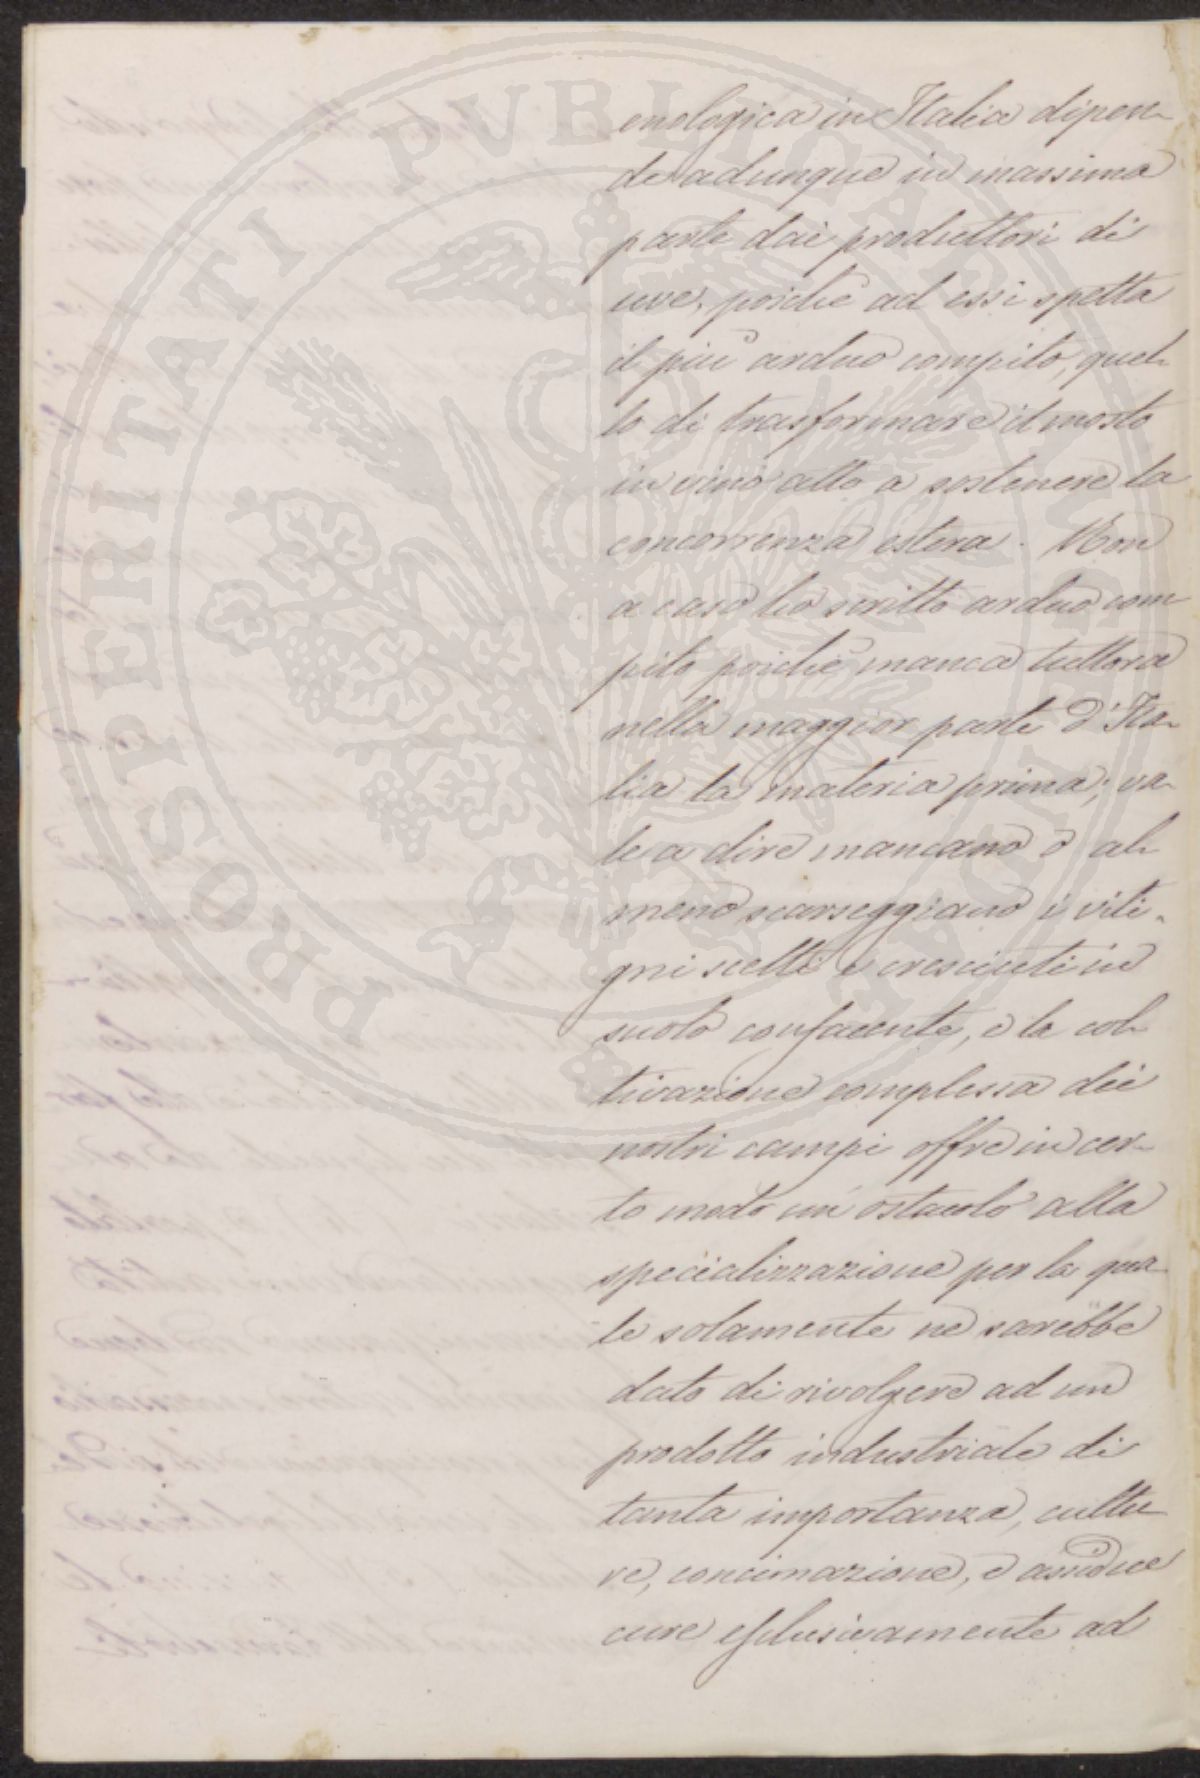 enologica in Italia dipen-
de adunque in massima
parte dai produttori di
uve, poichè ad essi spetta
il più arduo compito, quel-
lo di trasformare il mosto
in vino atto a sostenere la
concorrenza estera. Non
a caso ho scritto arduo com
pito poichè manca tuttora
nella maggior parte d'Ita-
lia la materia prima; va-
le a dire mancano o al-
meno scarseggiano i viti-
gni scelti e cresciuti in
suolo confacente, e la col-
tivazione complessa dei
nostri campi offre in cer-
to modo un ostacolo alla
specializzazione per la qua-
le solamente ne sarebbe
dato di rivolgere ad un
prodotto industriale di
tanta importanza, cultu-
re, concimazione, e assidue
cure esclusivamente ad
PROSPERITATI PVBLICAE AVGENDAE